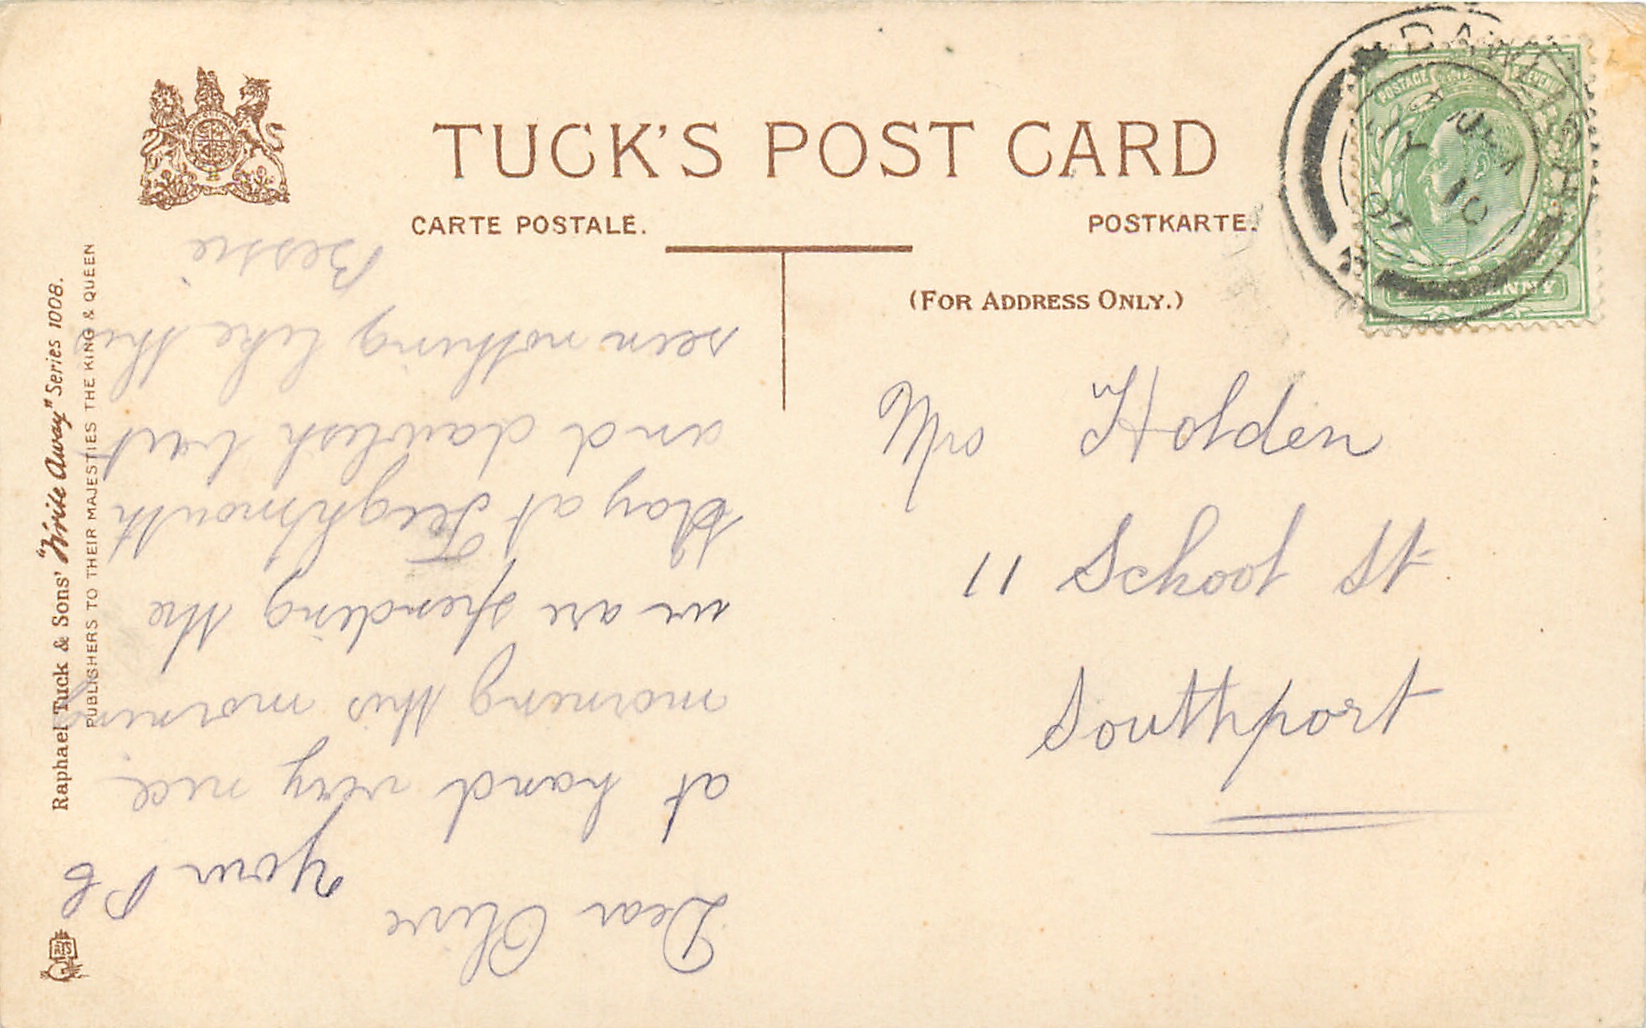 TUCK'S POST CARD
CARTE POSTALE.
POSTKARTE.
(FOR ADDRESS ONLY.)
Raphael Tuck & Sons' "Write Away" Series 1008.
PUBLISHERS TO THEIR MAJESTIES THE KING & QUEEN
DAWLISH
JY 10
07
POSTAGE REVENUE
HALFPENNY
Mrs Holden
11 School St
Southport
Dear Olive
your P C
at hand very nice
morning this morning
we are spending the
day at Teighmouth
and dawlish but
seen nothing like this
Bessie